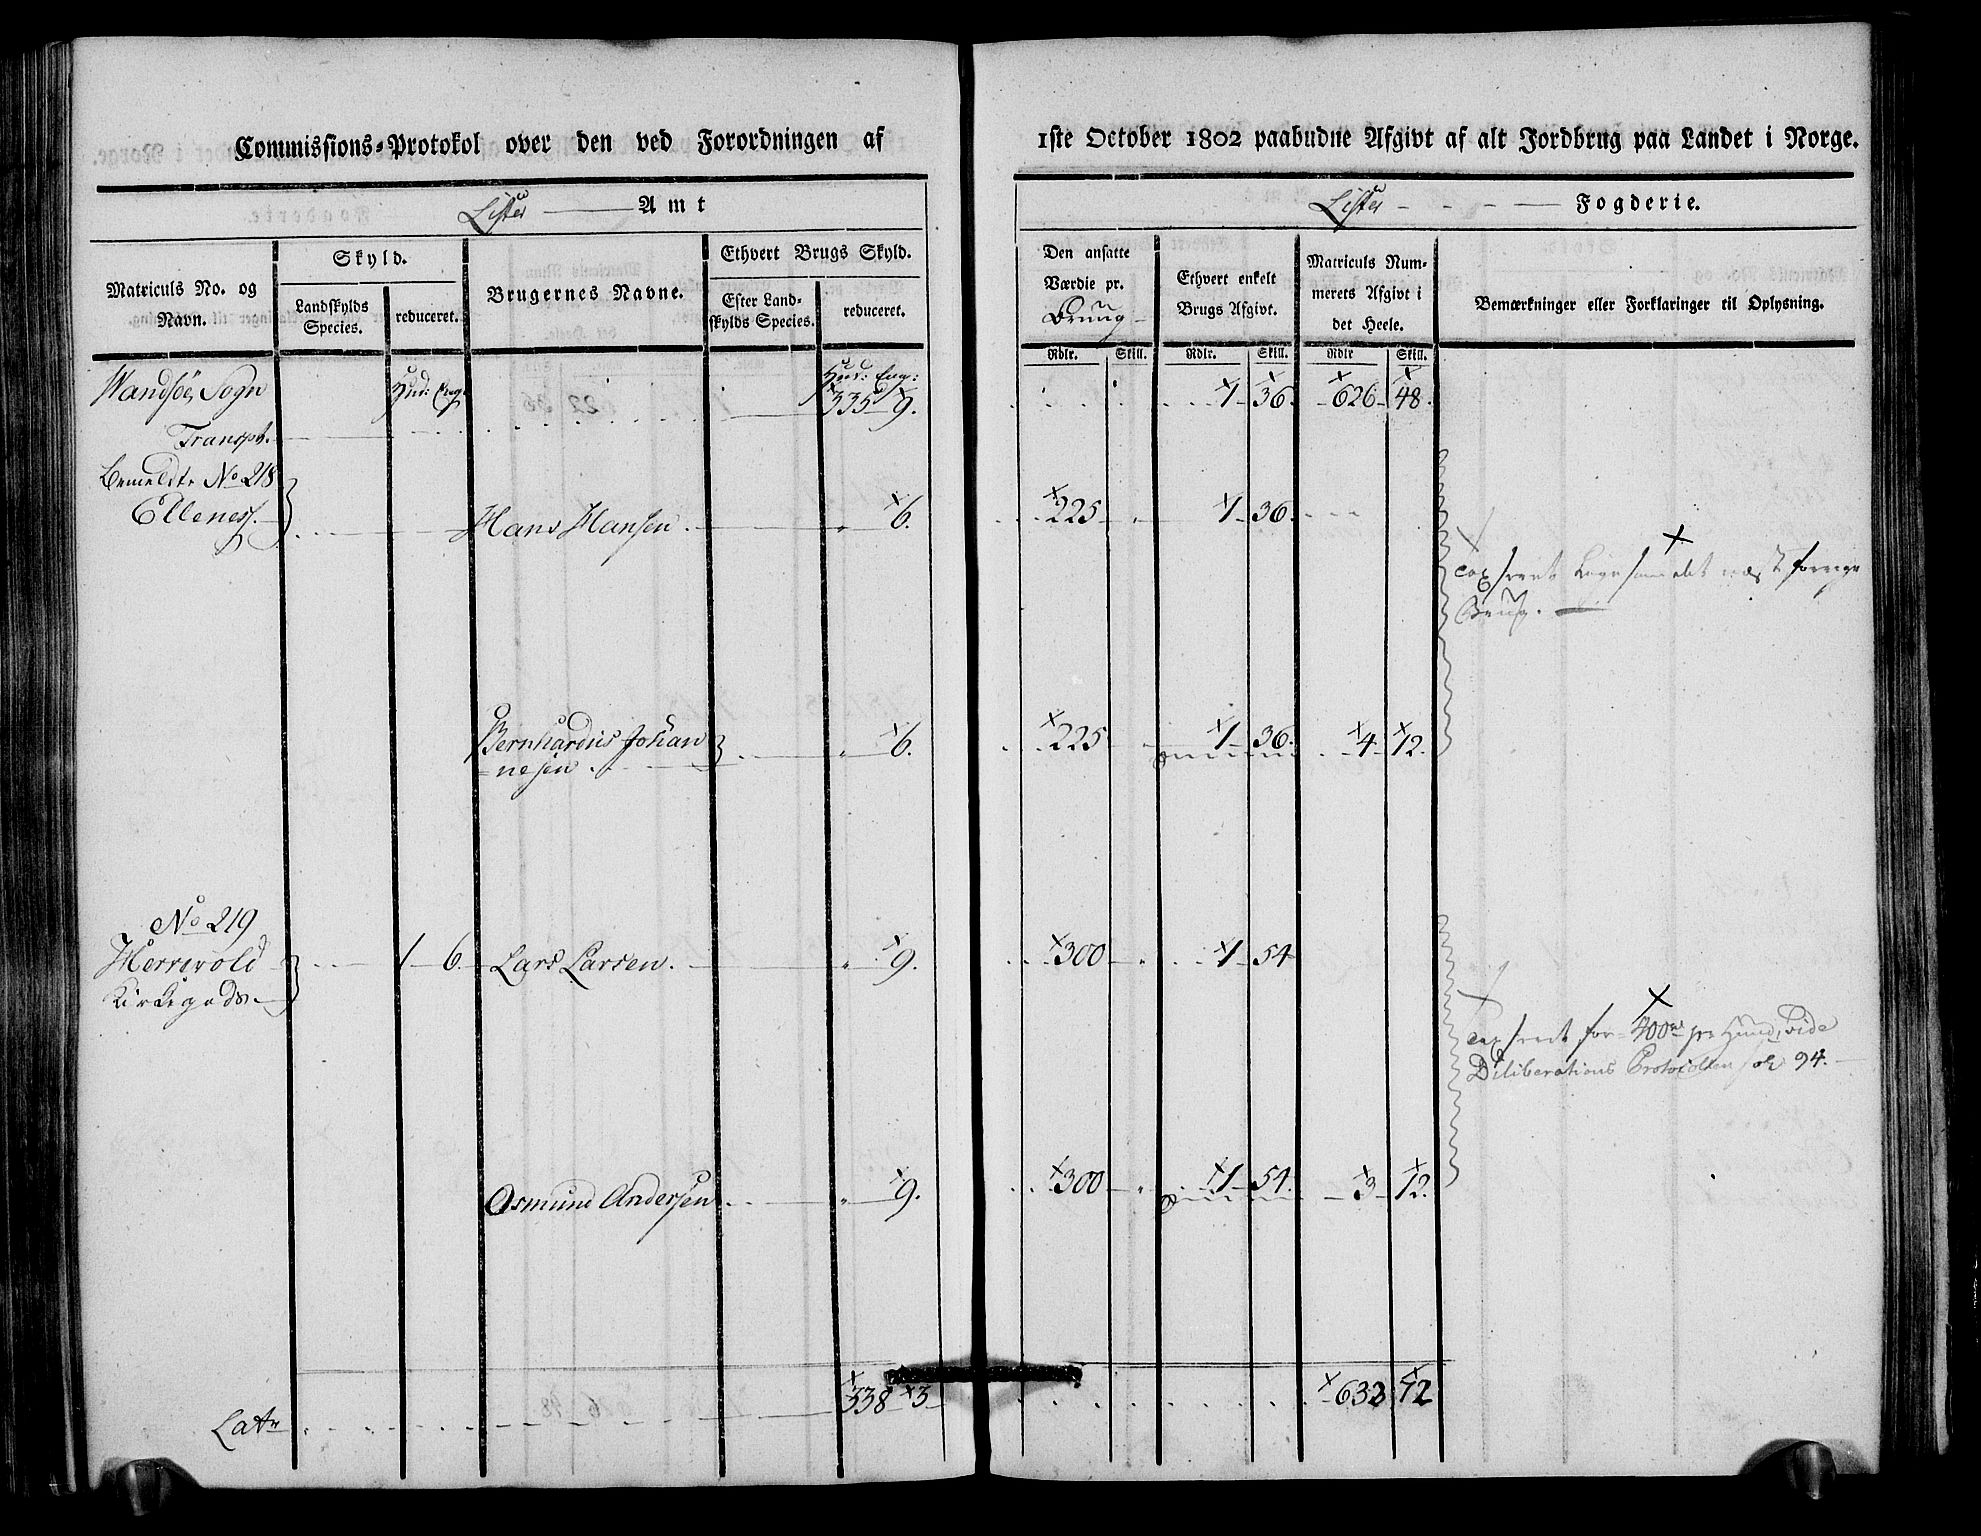 Commissions-Protokol over den ved Forordningen af
Lister Amt
Matriculs No. og Navn.
Skyld.
Landskylds Species.
reduceret.
Brugernes Navne.
Ethvert Brugs Skyld.
Efter Landskylds Species.
reduceret.
Hud: Eng:
Hud: Eng:
335 9.
Transpt.
Bemeldte No 218
Ellenes
Hans Hansen. " 6.
Bernhardus Johan
=nesen. " 6.
No 219
Herrevold
Kirkegods.
1 6. Lars Larsen. " 9.
Osmund Andersen " 9.
Latr 338 3
1ste October 1802 paabudne Afgivt af alt Jordbrug paa Landet i Norge.
Lister Fogderie.
Den ansatte Værdie pr.
Brug
Ethvert enkelt Brugs Afgivt.
Matriculs Nummerets Afgivt i det Heele.
Bemærkninger eller Forklaringer til Oplysning.
Rdlr. Skill. Rdlr. Skill. Rdlr Skill.
1 36. 626 48.
225 1 36.
taxseret ligesom det næst forrige
Brug.
225 1 36. 4 12.
300 1 54
taxseret for 400 rd pr Hund, vide
Deliberations Protocollen fol 94.
300 1 54. 3 12.
633 72